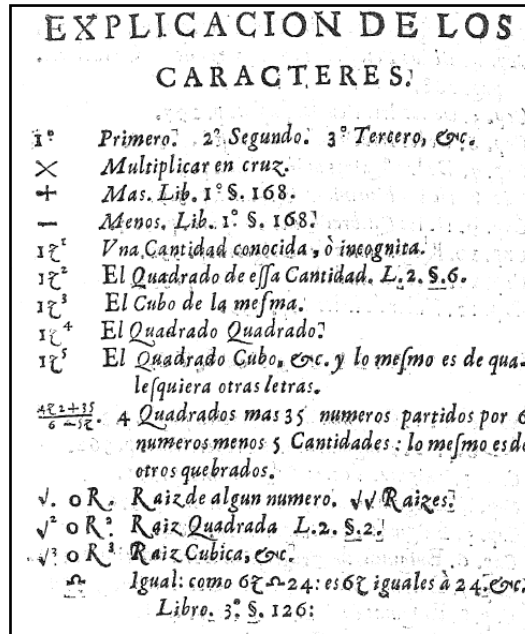 EXPLICACION DE LOS
CARACTERES.
1º Primero. 2º Segundo. 3º Tercero, &c.
× Multiplicar en cruz.
+ Mas. Lib. 1º §. 168.
— Menos. Lib. 1º. §. 168.
1ζ¹ Vna Cantidad conocida, ò incognita.
1ζ² El Quadrado de eſſa Cantidad. L.2. §.6.
1ζ³ El Cubo de la meſma.
1ζ⁴ El Quadrado Quadrado.
1ζ⁵ El Quadrado Cubo, &c. y lo meſmo es de qua-
leſquiera otras letras.
4ζ2+35/6–5ζ. 4 Quadrados mas 35 numeros partidos por 6
numeros menos 5 Cantidades: lo meſmo es de
otros quebrados.
√. o R. Raiz de algun numero. √√ Raizes.
√² o R² Raiz Quadrada L.2. §.2.
√³ o R³ Raiz Cubica, &c.
♎ Igual: como 6ζ♎24: es 6ζ iguales à 24. &c.
Libro. 3º. §. 126: